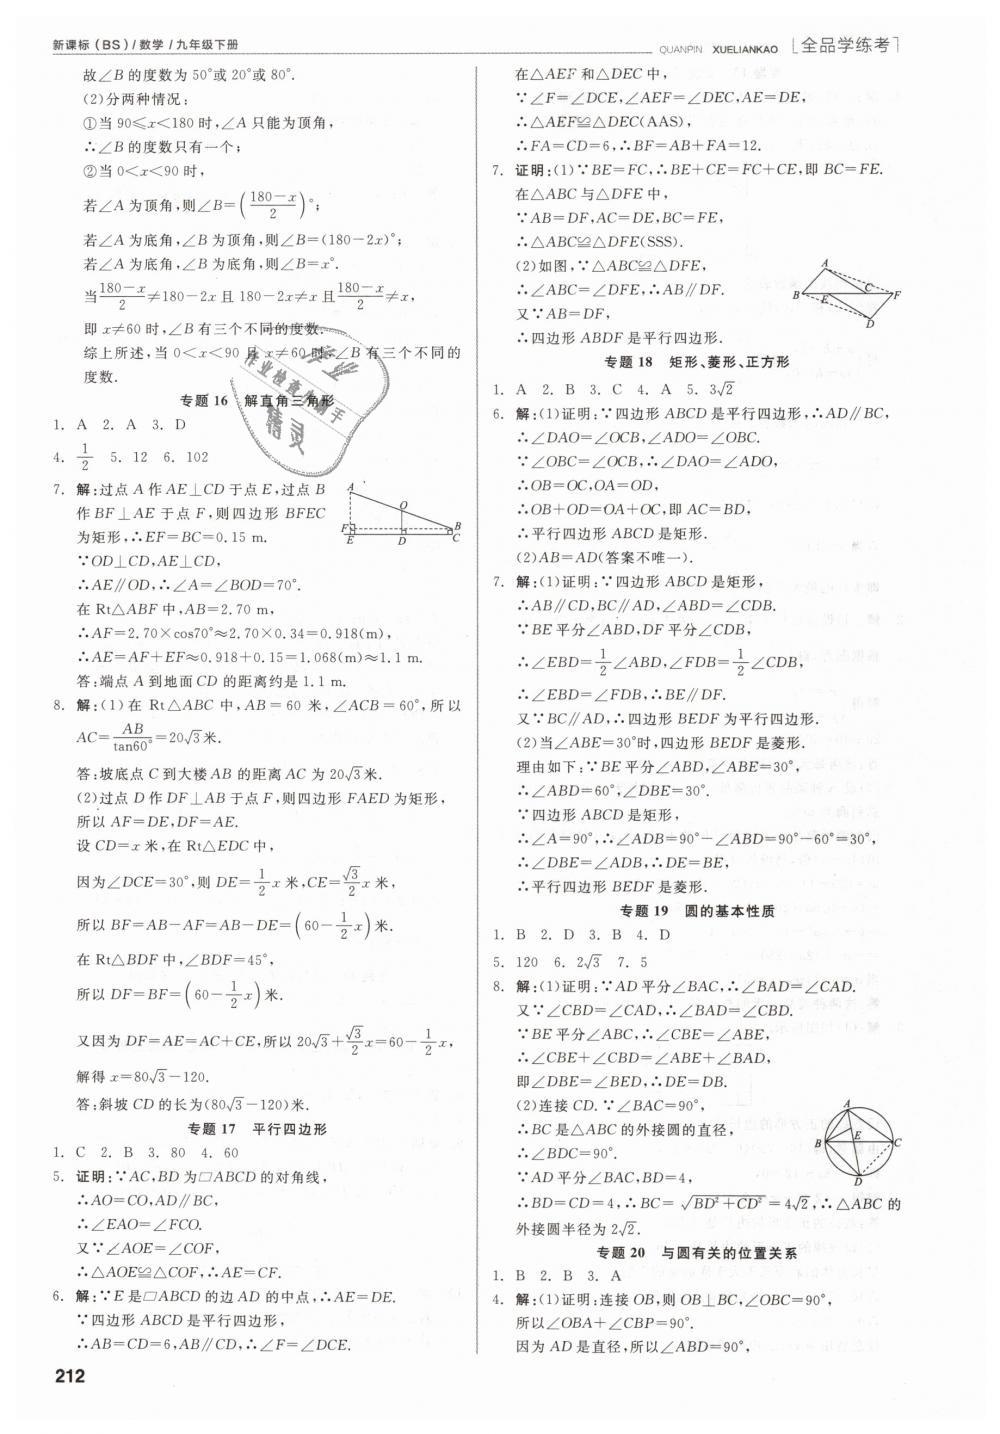 新课标（BS）/数学/九年级下册
QUANPIN XUELIANKAO 全品学练考
故∠B 的度数为 50°或 20°或 80°.
(2)分两种情况:
①当 90≤x<180 时,∠A 只能为顶角,
∴∠B 的度数只有一个;
②当 0<x<90 时,
若∠A 为顶角,则∠B=((180−x)/2)°;
若∠A 为底角,∠B 为顶角,则∠B=(180−2x)°;
若∠A 为底角,∠B 为底角,则∠B=x°.
当(180−x)/2≠180−2x 且 180−2x≠x 且(180−x)/2≠x,
即 x≠60 时,∠B 有三个不同的度数.
综上所述,当 0<x<90 且 x≠60 时,∠B 有三个不同的
度数.
专题 16 解直角三角形
1. A 2. A 3. D
4. 1/2 5. 12 6. 102
7. 解:过点 A 作 AE⊥CD 于点 E,过点 B
作 BF⊥AE 于点 F,则四边形 BFEC
为矩形,∴EF=BC=0.15 m.
∵OD⊥CD,AE⊥CD,
∴AE∥OD,∴∠A=∠BOD=70°.
在 Rt△ABF 中,AB=2.70 m,
∴AF=2.70×cos70°≈2.70×0.34=0.918(m),
∴AE=AF+EF≈0.918+0.15=1.068(m)≈1.1 m.
答:端点 A 到地面 CD 的距离约是 1.1 m.
A O F B E D C
8. 解:(1)在 Rt△ABC 中,AB=60 米,∠ACB=60°,所以
AC=AB/tan60°=20√3米.
答:坡底点 C 到大楼 AB 的距离 AC 为 20√3米.
(2)过点 D 作 DF⊥AB 于点 F,则四边形 FAED 为矩形,
所以 AF=DE,DF=AE.
设 CD=x 米,在 Rt△EDC 中,
因为∠DCE=30°,则 DE=1/2x 米,CE=√3/2x 米,
所以 BF=AB−AF=AB−DE=(60−1/2x)米.
在 Rt△BDF 中,∠BDF=45°,
所以 DF=BF=(60−1/2x)米.
又因为 DF=AE=AC+CE,所以 20√3+√3/2x=60−1/2x,
解得 x=80√3−120.
答:斜坡 CD 的长为(80√3−120)米.
专题 17 平行四边形
1. C 2. B 3. 80 4. 60
5. 证明:∵AC,BD 为□ABCD 的对角线,
∴AO=CO,AD∥BC,
∴∠EAO=∠FCO.
又∵∠AOE=∠COF,
∴△AOE≌△COF,∴AE=CF.
6. 解:∵E 是□ABCD 的边 AD 的中点,∴AE=DE.
∵四边形 ABCD 是平行四边形,
∴AB=CD=6,AB∥CD,∴∠F=∠DCE.
在△AEF 和△DEC 中,
∵∠F=∠DCE,∠AEF=∠DEC,AE=DE,
∴△AEF≌△DEC(AAS),
∴FA=CD=6,∴BF=AB+FA=12.
7. 证明:(1)∵BE=FC,∴BE+CE=FC+CE,即 BC=FE.
在△ABC 与△DFE 中,
∵AB=DF,AC=DE,BC=FE,
∴△ABC≌△DFE(SSS).
(2)如图,∵△ABC≌△DFE,
∴∠ABC=∠DFE,∴AB∥DF.
又∵AB=DF,
∴四边形 ABDF 是平行四边形.
A B E C F D
专题 18 矩形、菱形、正方形
1. A 2. B 3. C 4. A 5. 3√2
6. 解:(1)证明:∵四边形 ABCD 是平行四边形,∴AD∥BC,
∴∠DAO=∠OCB,∠ADO=∠OBC.
∵∠OBC=∠OCB,∴∠DAO=∠ADO,
∴OB=OC,OA=OD,
∴OB+OD=OA+OC,即 AC=BD,
∴平行四边形 ABCD 是矩形.
(2)AB=AD(答案不唯一).
7. 解:(1)证明:∵四边形 ABCD 是矩形,
∴AB∥CD,BC∥AD,∠ABD=∠CDB.
∵BE 平分∠ABD,DF 平分∠CDB,
∴∠EBD=1/2∠ABD,∠FDB=1/2∠CDB,
∴∠EBD=∠FDB,∴BE∥DF.
又∵BC∥AD,∴四边形 BEDF 为平行四边形.
(2)当∠ABE=30°时,四边形 BEDF 是菱形.
理由如下:∵BE 平分∠ABD,∠ABE=30°,
∴∠ABD=60°,∠DBE=30°.
∵四边形 ABCD 是矩形,
∴∠A=90°,∴∠ADB=90°−∠ABD=90°−60°=30°,
∴∠DBE=∠ADB,∴DE=BE,
∴平行四边形 BEDF 是菱形.
专题 19 圆的基本性质
1. B 2. D 3. B 4. D
5. 120 6. 2√3 7. 5
8. 解:(1)证明:∵AD 平分∠BAC,∴∠BAD=∠CAD.
又∵∠CBD=∠CAD,∴∠BAD=∠CBD.
∵BE 平分∠ABC,∴∠CBE=∠ABE,
∴∠CBE+∠CBD=∠ABE+∠BAD,
即∠DBE=∠BED,∴DE=DB.
(2)连接 CD.∵∠BAC=90°,
∴BC 是△ABC 的外接圆的直径,
∴∠BDC=90°.
∵AD 平分∠BAC,BD=4,
∴BD=CD=4,∴BC=√(BD²+CD²)=4√2,∴△ABC 的
外接圆半径为 2√2.
A E B C D
专题 20 与圆有关的位置关系
1. B 2. B 3. A
4. 解:(1)证明:连接 OB,则 OB⊥BC,∠OBC=90°,
所以∠OBA+∠CBP=90°.
因为 AD 是直径,所以∠ABD=90°,
212
作业检查小助手
作业
精灵